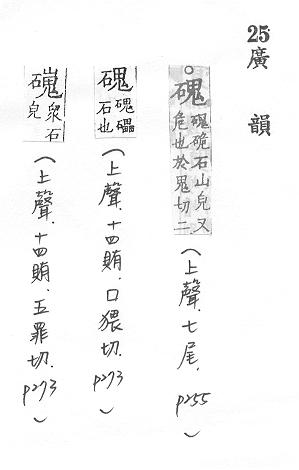 25廣韻
磈 磈硊石山皃又危也於鬼切二 (上聲.七尾. p255)
磈 磈礧石也 (上聲.十四賄.口猥切. p273)
磈 眾石皃 (上聲.十四賄.五罪切. p273)